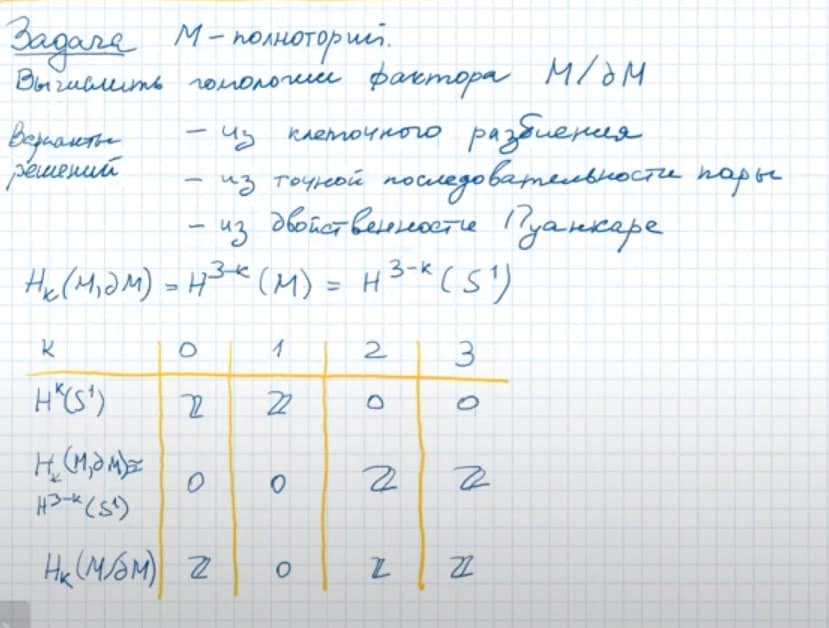 Задача M – полноторий.
Вычислить гомологии фактора M/∂M
Варианты решений – из клеточного разбиения
– из точной последовательности пары
– из двойственности Пуанкаре
Hₖ(M,∂M) = H³⁻ᵏ(M) = H³⁻ᵏ(S¹)
K 0 1 2 3
Hᵏ(S¹) ℤ ℤ 0 0
Hₖ(M,∂M) ≅ H³⁻ᵏ(S¹) 0 0 ℤ ℤ
Hₖ(M/∂M) ℤ 0 ℤ ℤ